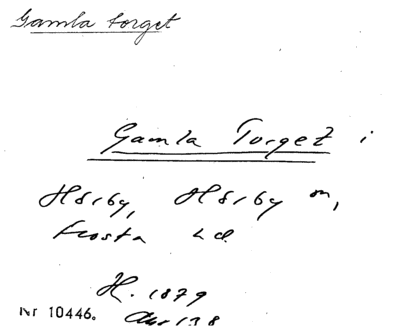 Gamla torget
Gamla Torget i
Hörby, Hörby sn,
Frosta hd.
H. 1879
Nr 10446.